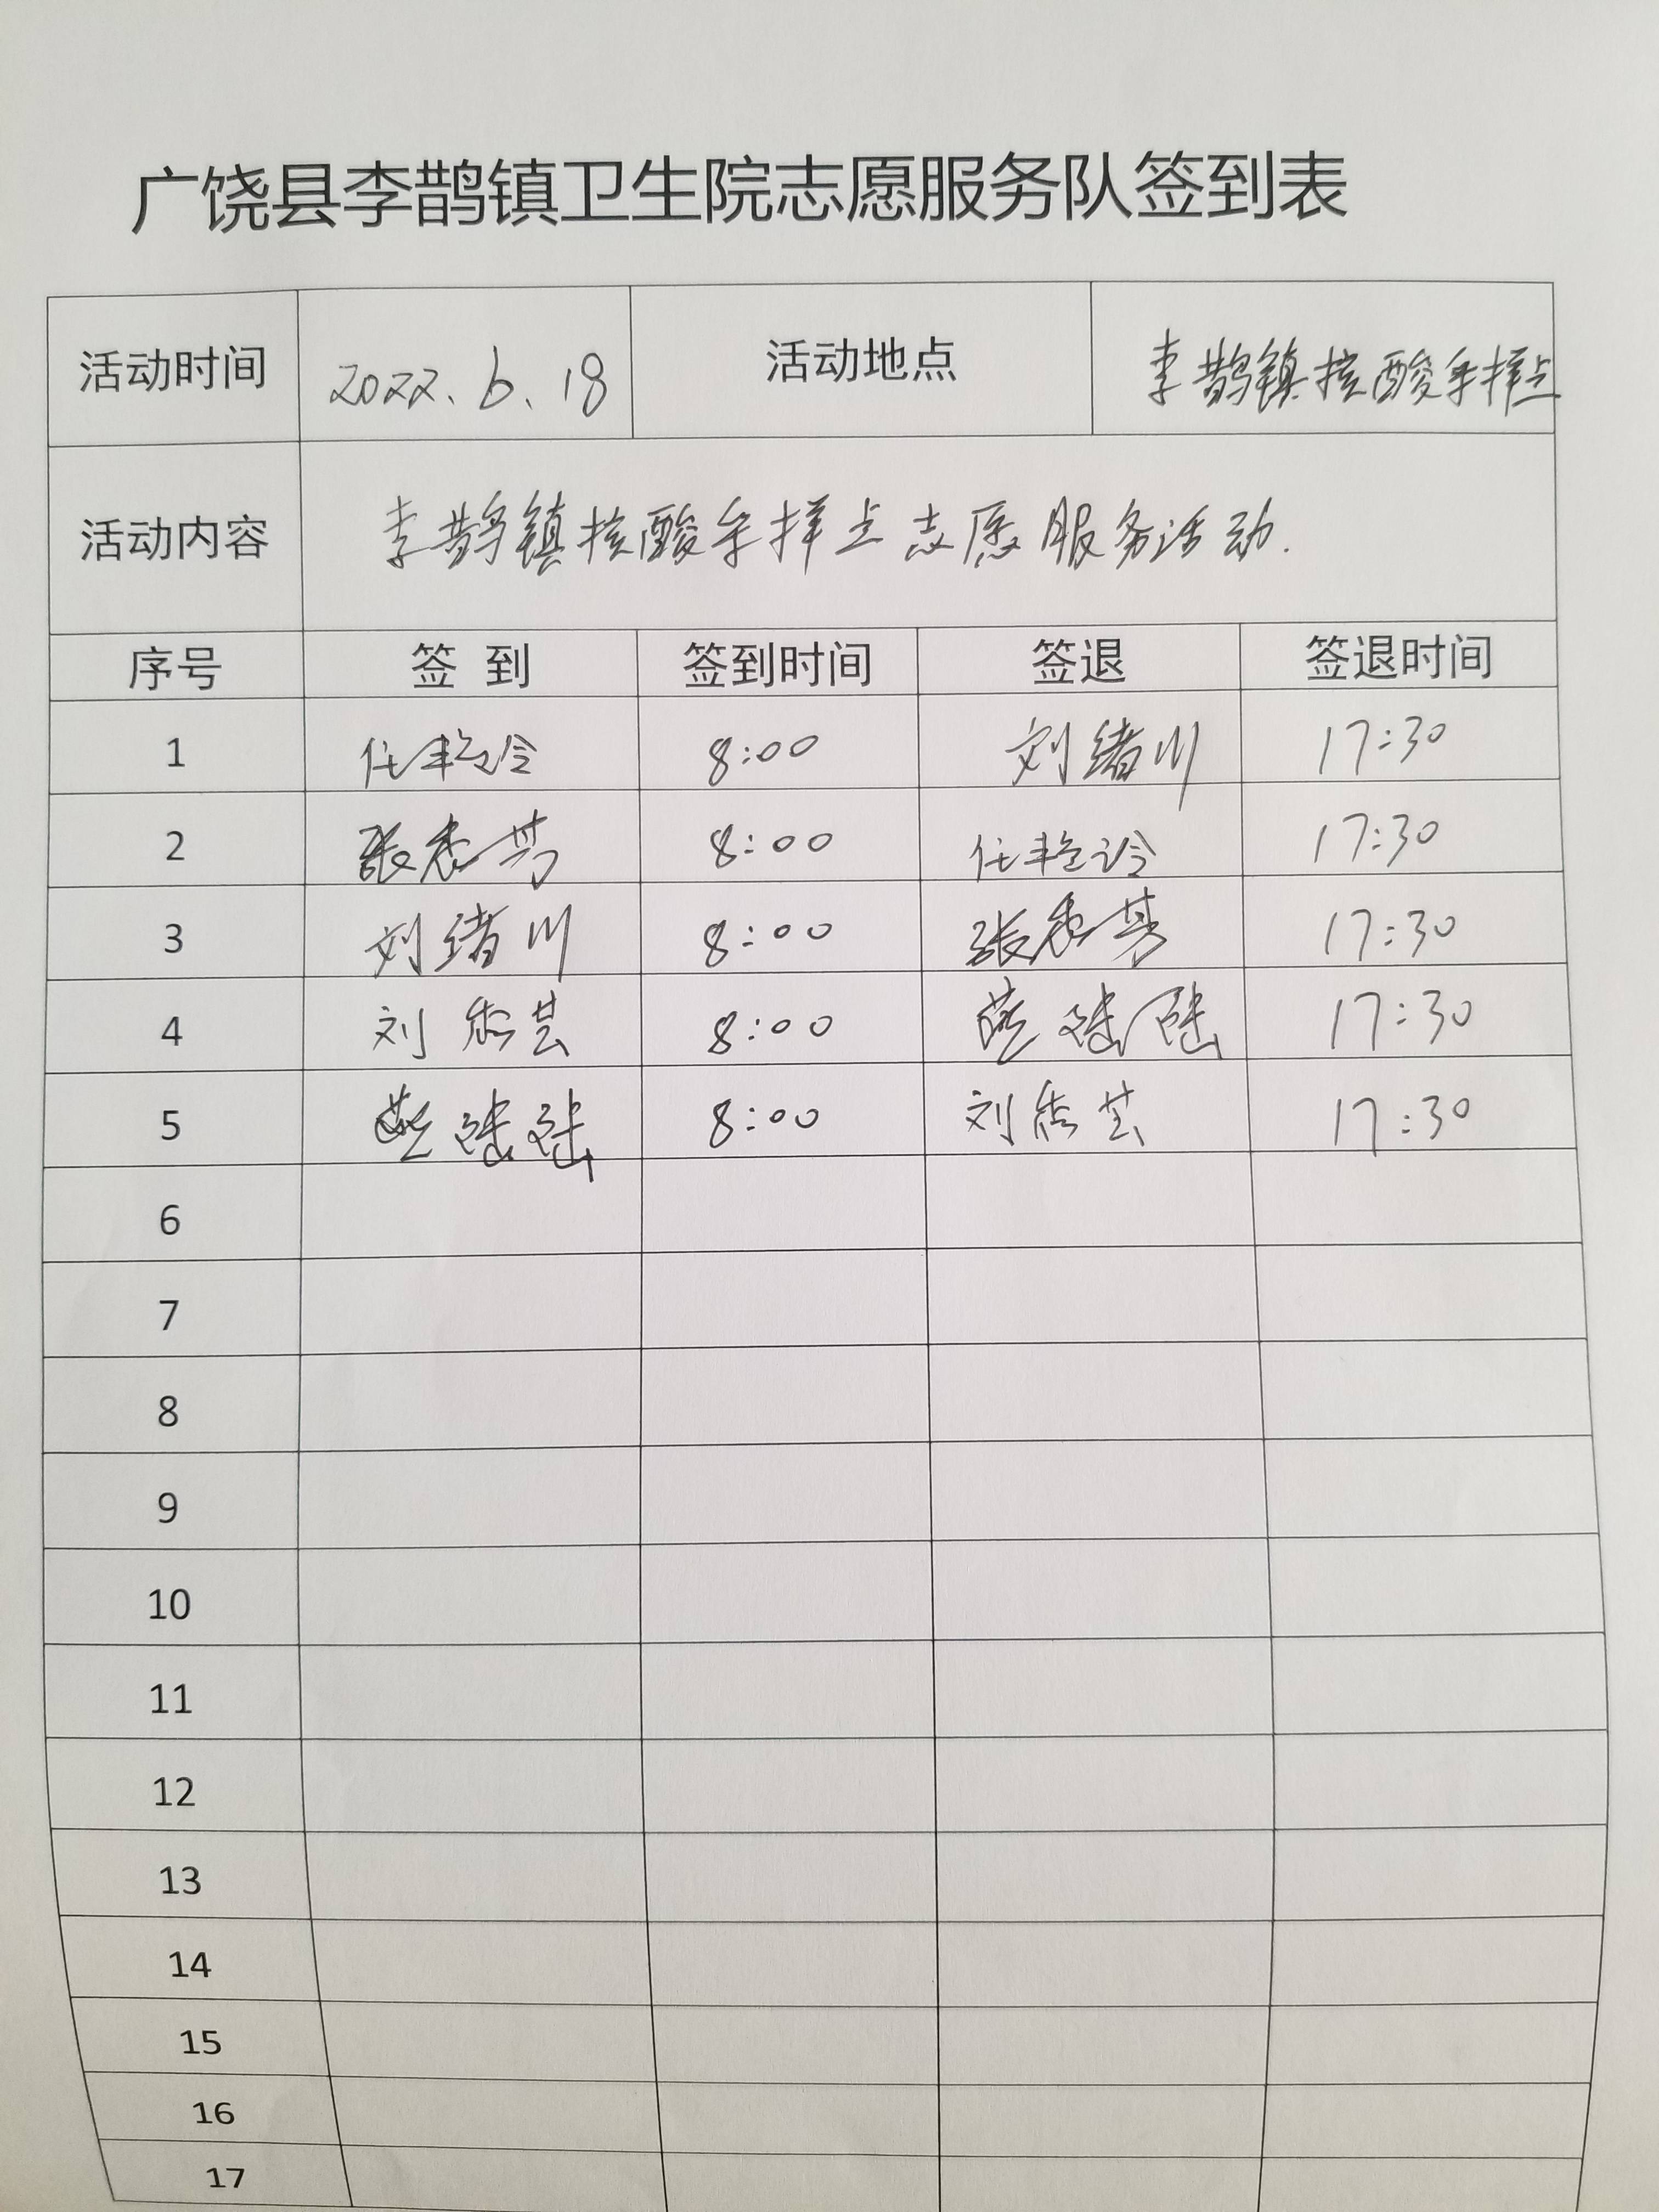 广饶县李鹊镇卫生院志愿服务队签到表
活动时间 2022.6.18 活动地点 李鹊镇核酸采样点
活动内容 李鹊镇核酸采样点志愿服务活动.
序号 签 到 签到时间 签退 签退时间
1 任艳玲 8:00 刘绪川 17:30
2 张秀芳 8:00 任艳玲 17:30
3 刘绪川 8:00 张秀芳 17:30
4 刘秀芸 8:00 17:30
5 8:00 刘秀芸 17:30
6
7
8
9
10
11
12
13
14
15
16
17